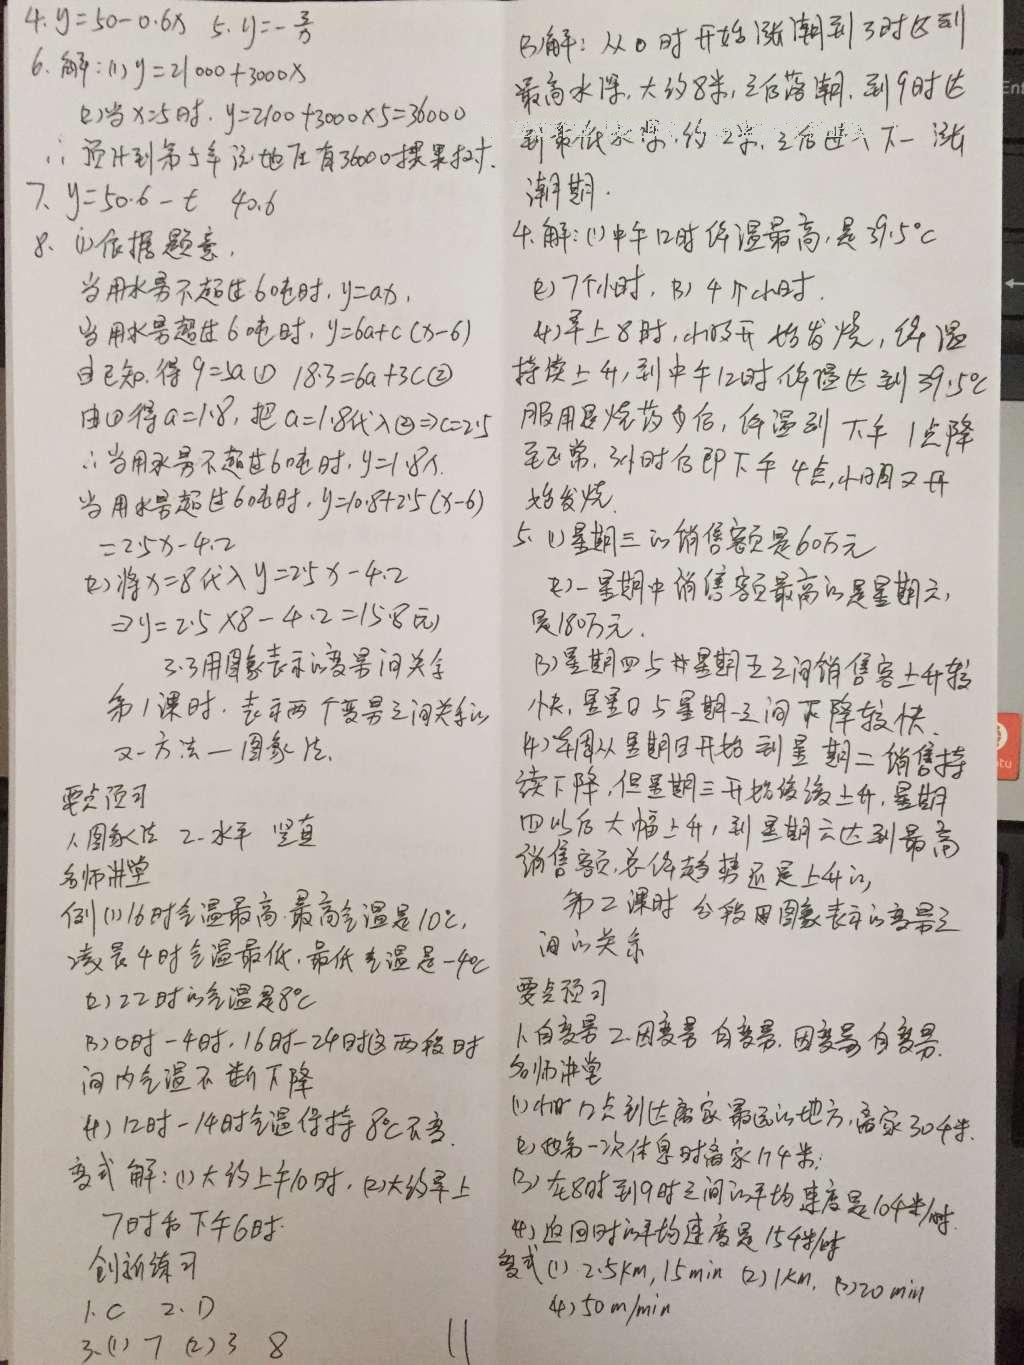 4. y=50-0.6x 5. y=-3/x
6. 解:(1) y=21000+3000x
(2)当x=5时. y=2100+3000×5=36000
∴ 预计到第5年该地区有36000棵果树.
7. y=50.6-t 40.6
8. (1)依据题意,
当用水量不超过6吨时, y=ax,
当用水量超过6吨时, y=6a+c(x-6)
由已知,得 9=5a① 18.3=6a+3c②
由①得a=1.8, 把a=1.8代入②⇒c=2.5
∴当用水量不超过6吨时, y=1.8x.
当用水量超过6吨时, y=10.8+2.5(x-6)
=2.5x-4.2
(2)将x=8代入y=2.5x-4.2
⇒y=2.5×8-4.2=15.8(元)
3.3用图象表示的变量间关系
第1课时. 表示两个变量之间关系的
又一方法—图象法.
要点预习
1.图象法 2.水平 竖直
名师讲堂
例(1)16时气温最高.最高气温是10℃,
凌晨4时气温最低,最低气温是-4℃
(2)22时的气温是8℃
(3)0时-4时,16时-24时这两段时
间内气温不断下降
(4)12时-14时气温保持8℃不变.
变式 解:(1)大约上午10时,(2)大约早上
7时和下午6时.
创新练习
1.C 2.D
3.(1) 7 (2) 3 8
11
(3)解: 从0时开始涨潮到3时达到
最高水深,大约8米,之后落潮,到9时达
到最低水深,约2米,之后进入下一涨
潮期.
4.解:(1)中午12时体温最高,是39.5℃
(2) 7个小时, (3) 4个小时.
(4)早上8时,小明开始发烧,体温
持续上升,到中午12时体温达到39.5℃
服用退烧药后,体温到下午1点降
至正常,3小时后即下午4点,小明又开
始发烧.
5. (1)星期三的销售额是60万元
(2)一星期中销售额最高的是星期六,
是180万元.
(3)星期四与星期五之间销售客上升较
快,星星日与星期一之间下降较快.
(4)本周从星期日开始到星期二销售持
续下降,但星期三开始缓缓上升,星期
四以后大幅上升,到星期六达到最高
销售额,总体趋势还是上升的,
第2课时 分段用图象表示的变量之
间的关系
要点预习
1.自变量 2.因变量 自变量. 因变量 自变量.
名师讲堂
(1)小时12点到达离家最远的地方,离家30千米.
(2)他第一次休息时离家17千米;
(3)在8时到9时之间的平均速度是10千米/时.
(4)返回时的平均速度是15千米/时
变式(1) 2.5km, 15min (2) 1km, (3)20min
(4) 50m/min